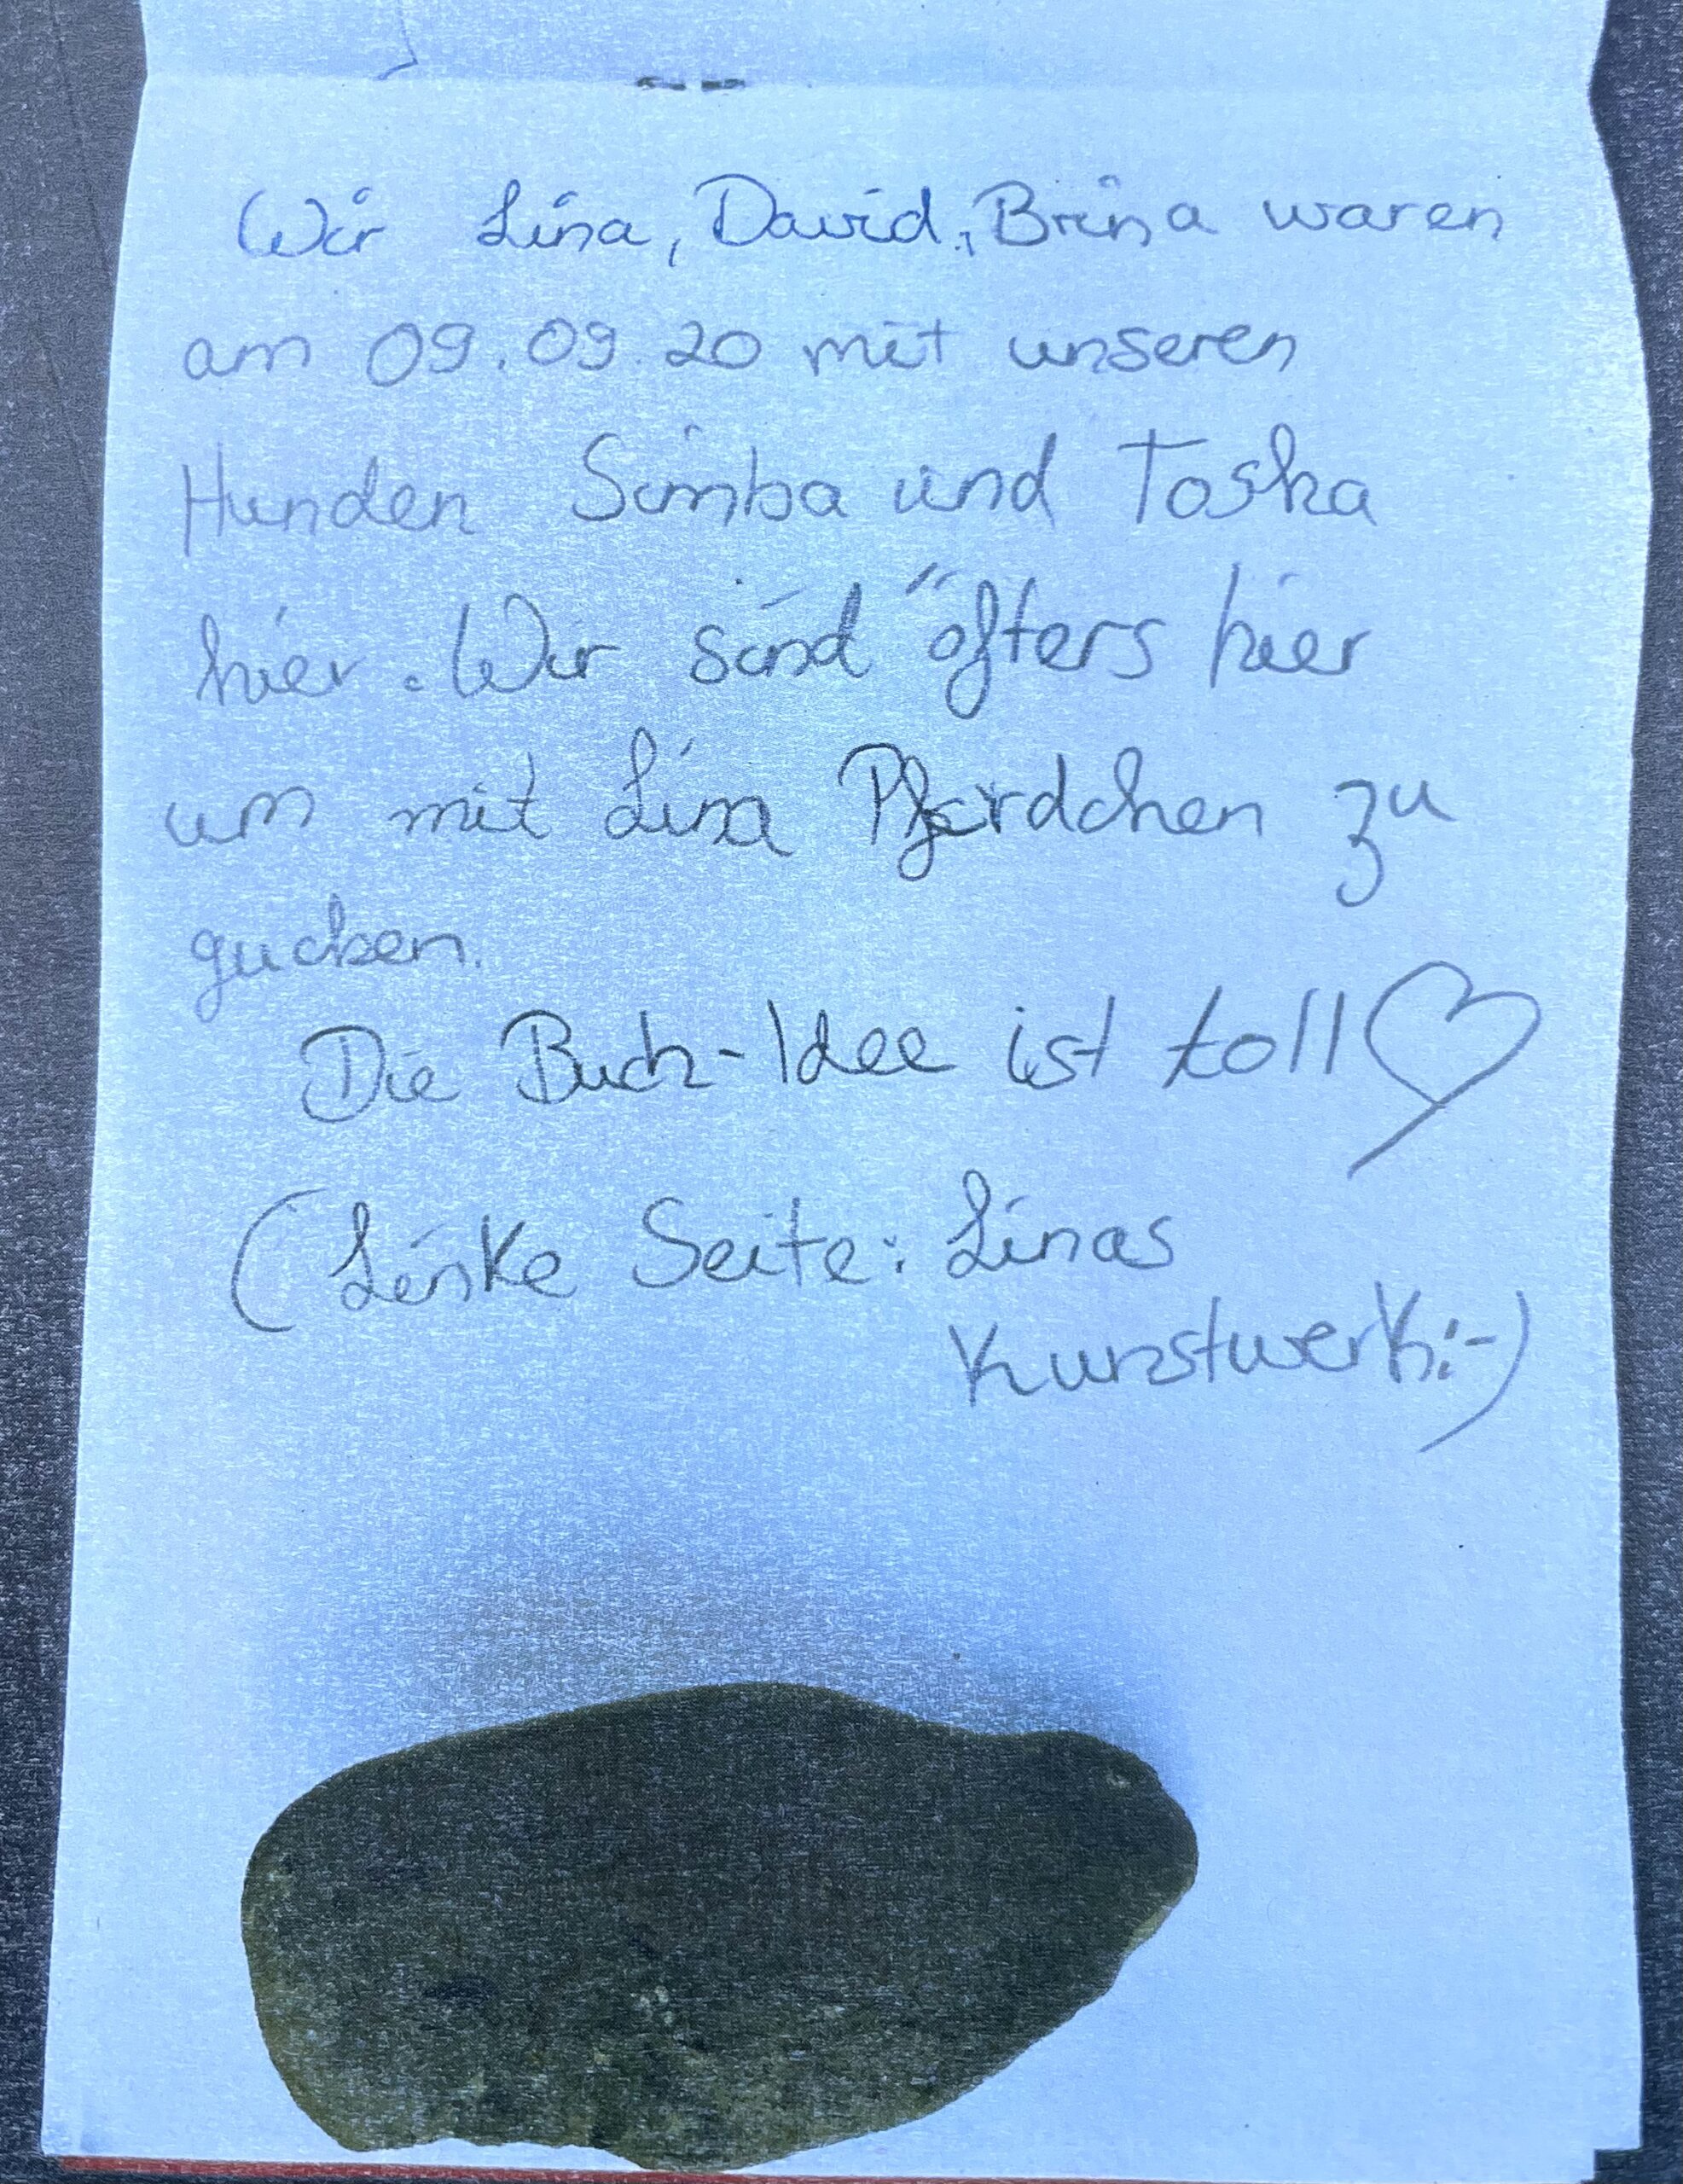 Wir Lina, David, Brina waren
am 09.09.20 mit unseren
Hunden Simba und Toska
hier. Wir sind öfters hier
um mit Lina Pferdchen zu
gucken.
Die Buch-Idee ist toll♡
(Linke Seite: Linas
Kunstwerk:-)